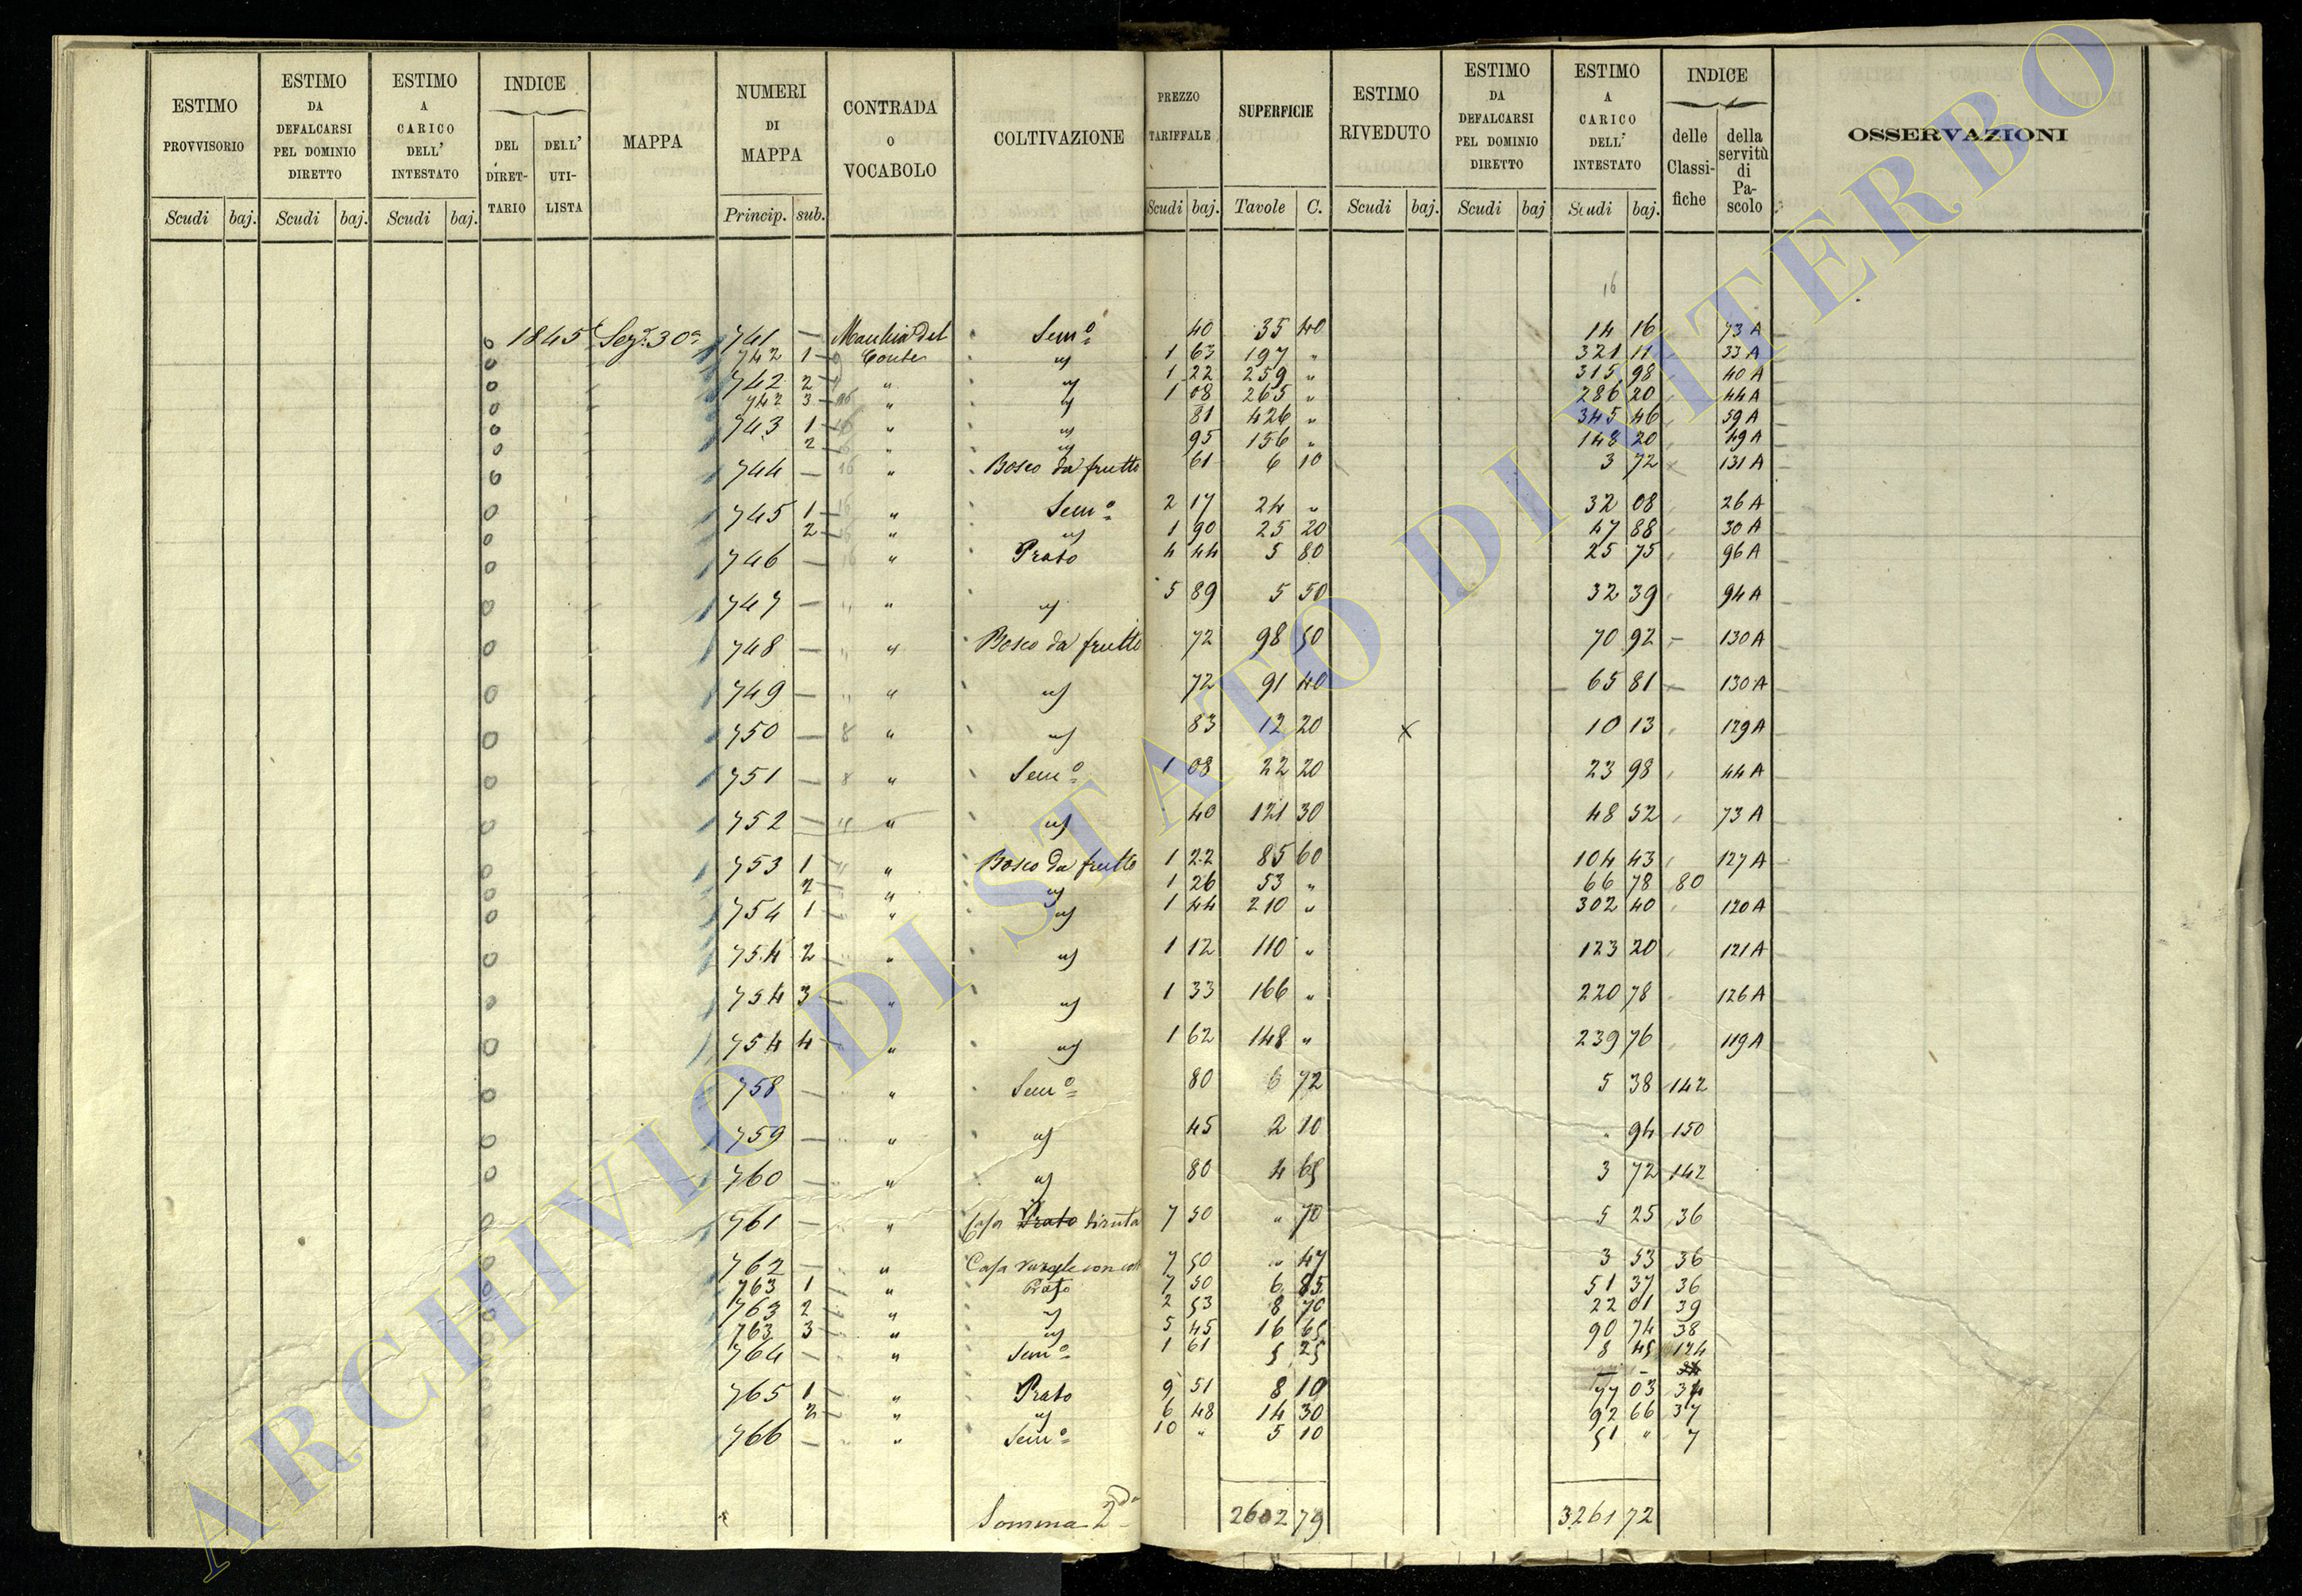 ESTIMO PROVVISORIO Scudi baj.
ESTIMO DA DEFALCARSI PEL DOMINIO DIRETTO Scudi baj.
ESTIMO A CARICO DELL' INTESTATO Scudi baj.
INDICE DEL DIRET-TARIO DELL' UTI-LISTA
MAPPA
NUMERI DI MAPPA Princip. sub.
CONTRADA O VOCABOLO
COLTIVAZIONE
PREZZO TARIFFALE Scudi baj.
SUPERFICIE Tavole C.
ESTIMO RIVEDUTO Scudi baj.
ESTIMO DA DEFALCARSI PEL DOMINIO DIRETTO Scudi baj
ESTIMO A CARICO DELL' INTESTATO Scudi baj.
INDICE delle Classi-fiche della servitù di Pa-scolo
OSSERVAZIONI
16
1845 Sez. 30a 741 — Macchia del Sem.o 40 35 40 14 16 73 A
742 1 Conte " 1 63 197 " 321 11 33 A
742 2 " " 1 22 259 " 315 98 40 A
742 3 " " 1 08 265 " 286 20 44 A
743 1 " " 81 426 " 345 46 59 A
2 " " 95 156 " 148 20 49 A
744 — 16 " Bosco da frutto 61 6 10 3 72 131 A
745 1 16 " Sem.o 2 17 24 " 32 08 26 A
2 " " 1 90 25 20 47 88 30 A
746 — 16 " Prato 4 44 5 80 25 75 96 A
747 — " " " 5 89 5 50 32 39 94 A
748 — " " Bosco da frutto 72 98 50 70 92 130 A
749 — " " " 72 91 40 65 81 130 A
750 — 8 " " 83 12 20 x 10 13 129 A
751 — 8 " Sem.o 1 08 22 20 23 98 44 A
752 — " " " 40 121 30 48 52 73 A
753 1 " " Bosco da frutto 1 22 85 60 104 43 127 A
2 " " 1 26 53 " 66 78 80
754 1 " " 1 44 210 " 302 40 120 A
754 2 " " 1 12 110 " 123 20 121 A
754 3 " " 1 33 166 " 220 78 126 A
754 4 " " 1 62 148 " 239 76 119 A
758 — " Sem.o 80 6 72 5 38 142
759 — " " 45 2 10 " 94 150
760 — " " 80 4 65 3 72 142
761 — " Casa Prato diruta 7 50 " 70 5 25 36
762 — " Casa rurale con 7 50 " 47 3 53 36
763 1 " Prato 7 50 6 85 51 37 36
763 2 " " 2 53 8 70 22 01 39
763 3 " " 5 45 16 65 90 74 38
764 — " Sem.o 1 61 5 25 8 45 124
765 1 " Prato 9 51 8 10 77 03
2 " " 6 48 14 30 92 66 37
766 — " Sem.o 10 " 5 10 51 " 7
Somma 2da 2602 79 3261 72
ARCHIVIO DI STATO DI VITERBO